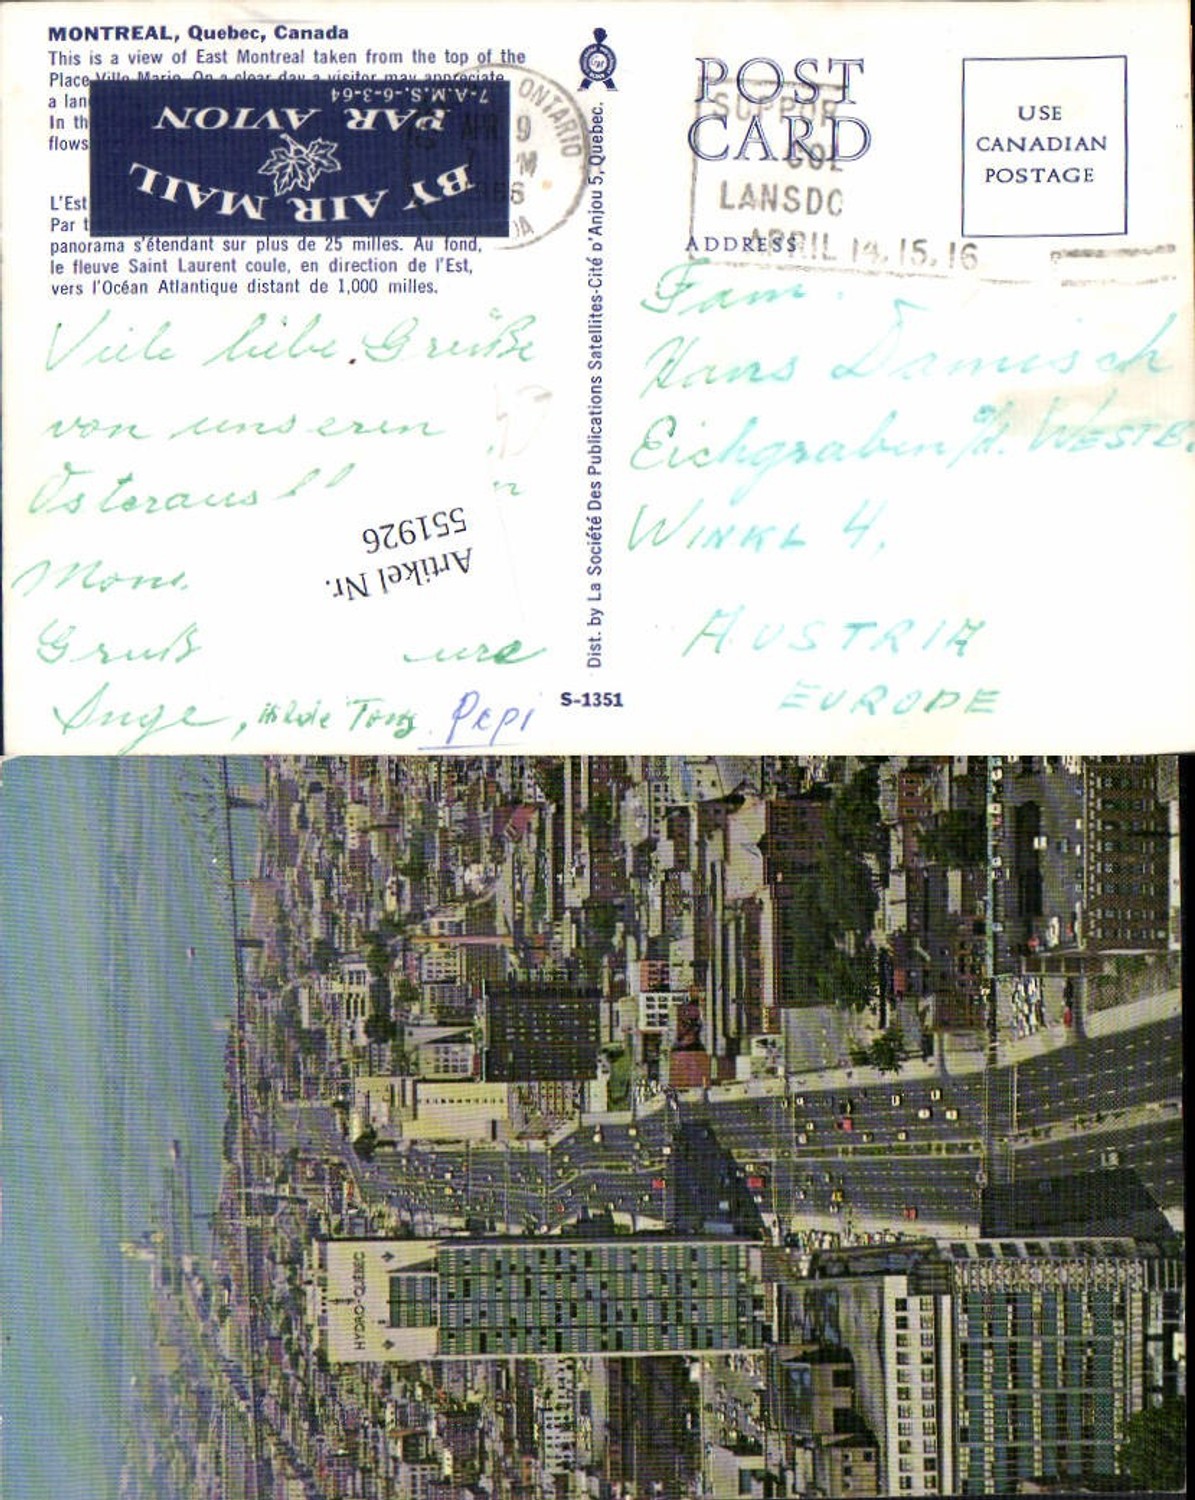 MONTREAL, Quebec, Canada
This is a view of East Montreal taken from the top of the
Place Ville Marie. On a clear day a visitor may appreciate
a lan
In th
flows
7-A.M.S.-9-3-64
PAR AVION
BY AIR MAIL
L'Est
Par t
panorama s'étendant sur plus de 25 milles. Au fond,
le fleuve Saint Laurent coule, en direction de l'Est,
vers l'Océan Atlantique distant de 1,000 milles.
ONTARIO
APR 9
M
Viele liebe Grüße
von unseren
Osteraus
Mon
Gruß eure
Inge, Hilde Pepi
Artikel Nr.
551926
Dist. by La Société Des Publications Satellites-Cité d'Anjou 5, Quebec.
S-1351
POST
CARD
SUPPOR
LANSDO
APRIL 14, 15, 16
ADDRESS
USE
CANADIAN
POSTAGE
Fam.
Hans Damisch
Eichgraben WESTB
WINKL 4,
AUSTRIA
EUROPE
HYDRO-QUÉBEC